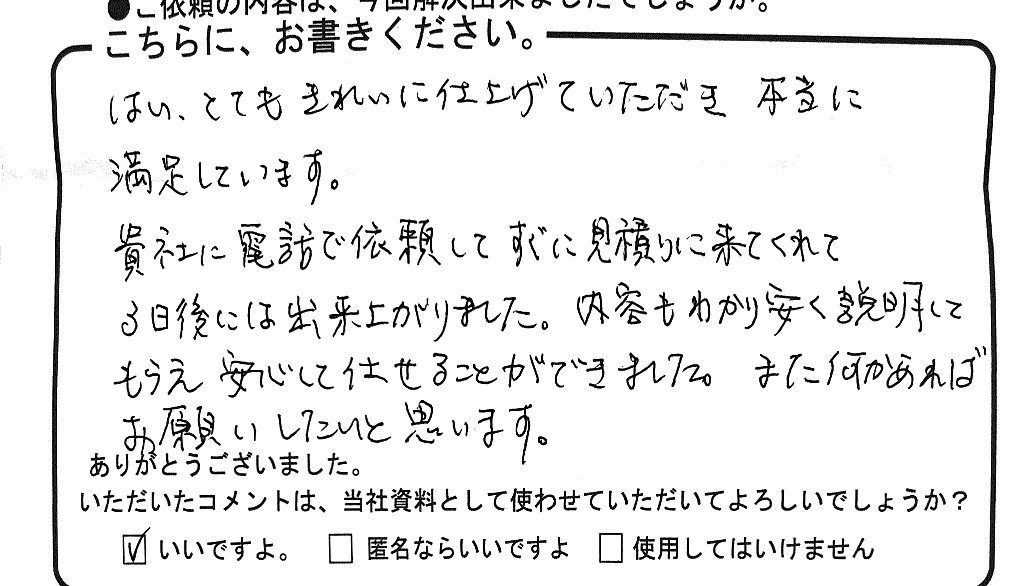 ●ご依頼の内容は、今回解決出来ましたでしょうか。
こちらに、お書きください。
はい、とても きれいに仕上げていただき 本当に
満足しています。
貴社に電話で依頼して すぐに見積りに来てくれて
3日後には出来上がりました。内容もわかり安く説明して
もらえ 安心して仕せることができました。 また何かあれば
お願いしたいと思います。
ありがとうございました。
いただいたコメントは、当社資料として使わせていただいてよろしいでしょうか？
☑ いいですよ。 □ 匿名ならいいですよ □ 使用してはいけません